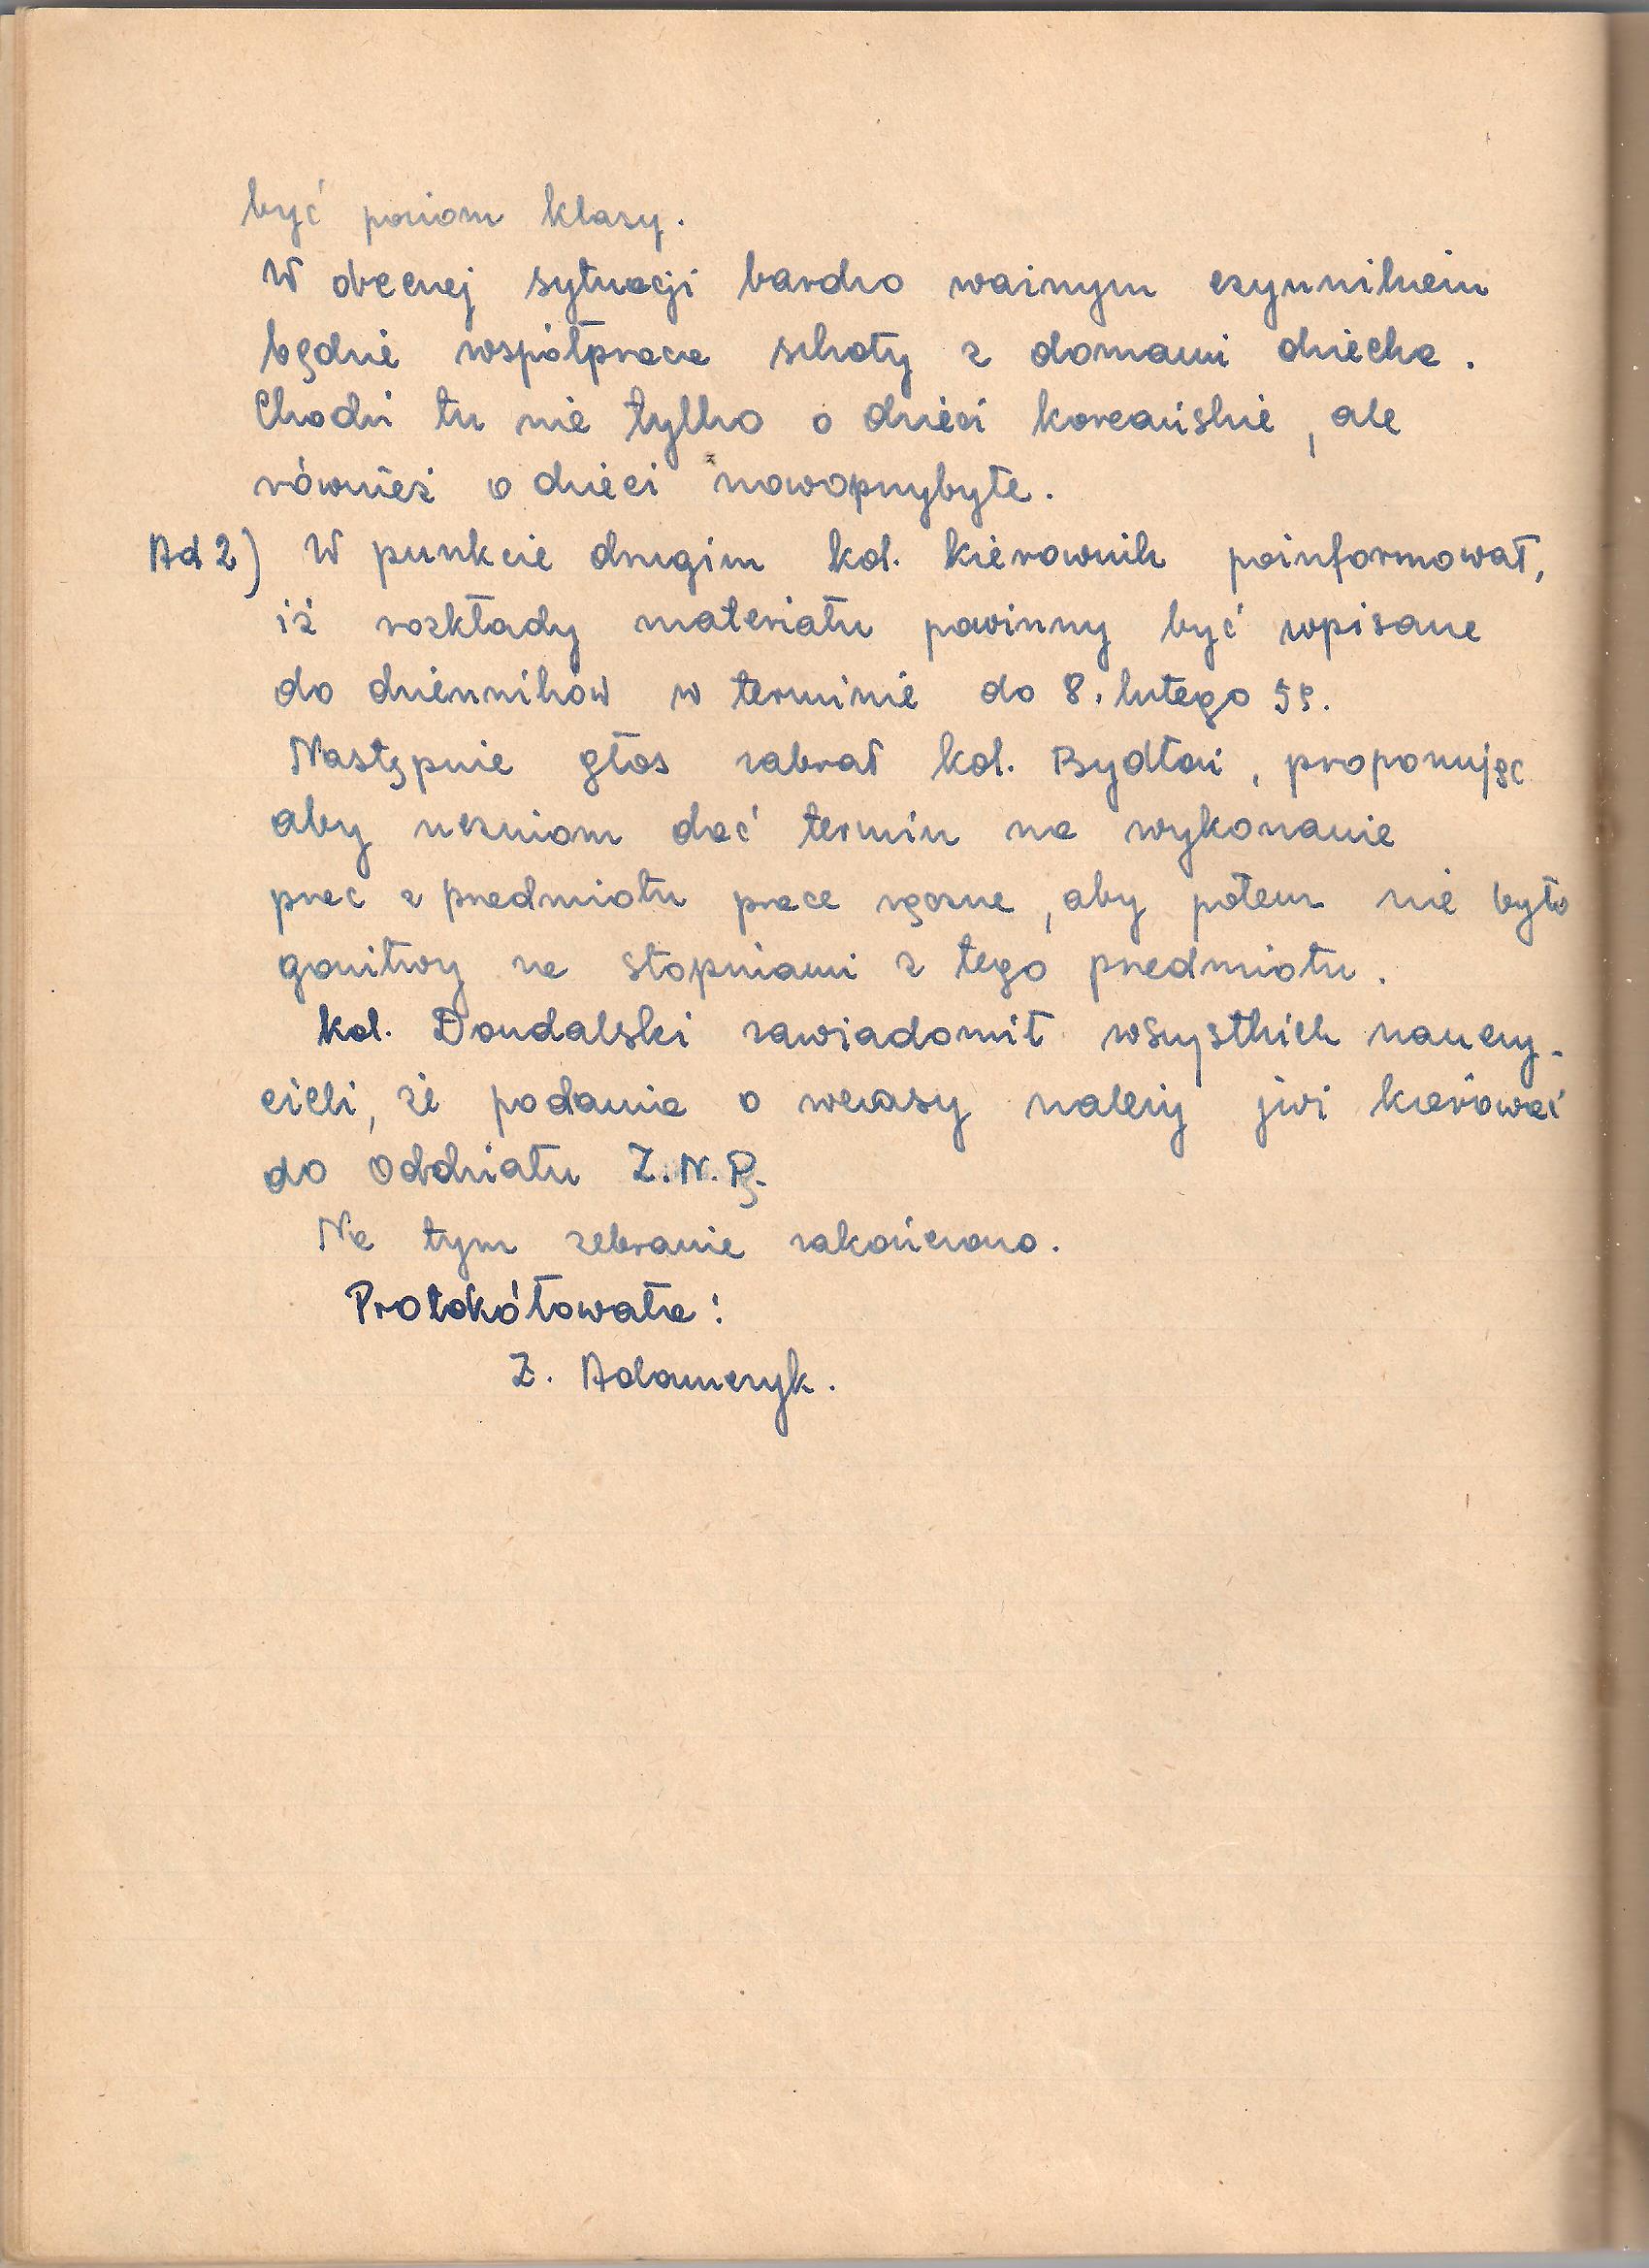 być poziom klasy.
W obecnej sytuacji bardzo ważnym czynnikiem
będzie współpraca szkoły z domami dziecka.
Chodzi tu nie tylko o dzieci koreańskie, ale
również o dzieci nowoprzybyłe.
Ad 2) W punkcie drugim kol. kierownik poinformował,
iż rozkłady materiału powinny być wpisane
do dzienników w terminie do 8. lutego 59.
Następnie głos zabrał kol. Bydłoń, proponując
aby uczniom dać termin na wykonanie
prac z przedmiotu prace ręczne, aby potem nie było
gonitwy za stopniami z tego przedmiotu.
kol. Doudalski zawiadomił wszystkich nauczy-
cieli, że podania o wczasy należy już kierować
do Oddziału Z.N.P.
Na tym zebranie zakończono.
Protokółowała:
Z. Adamczyk.